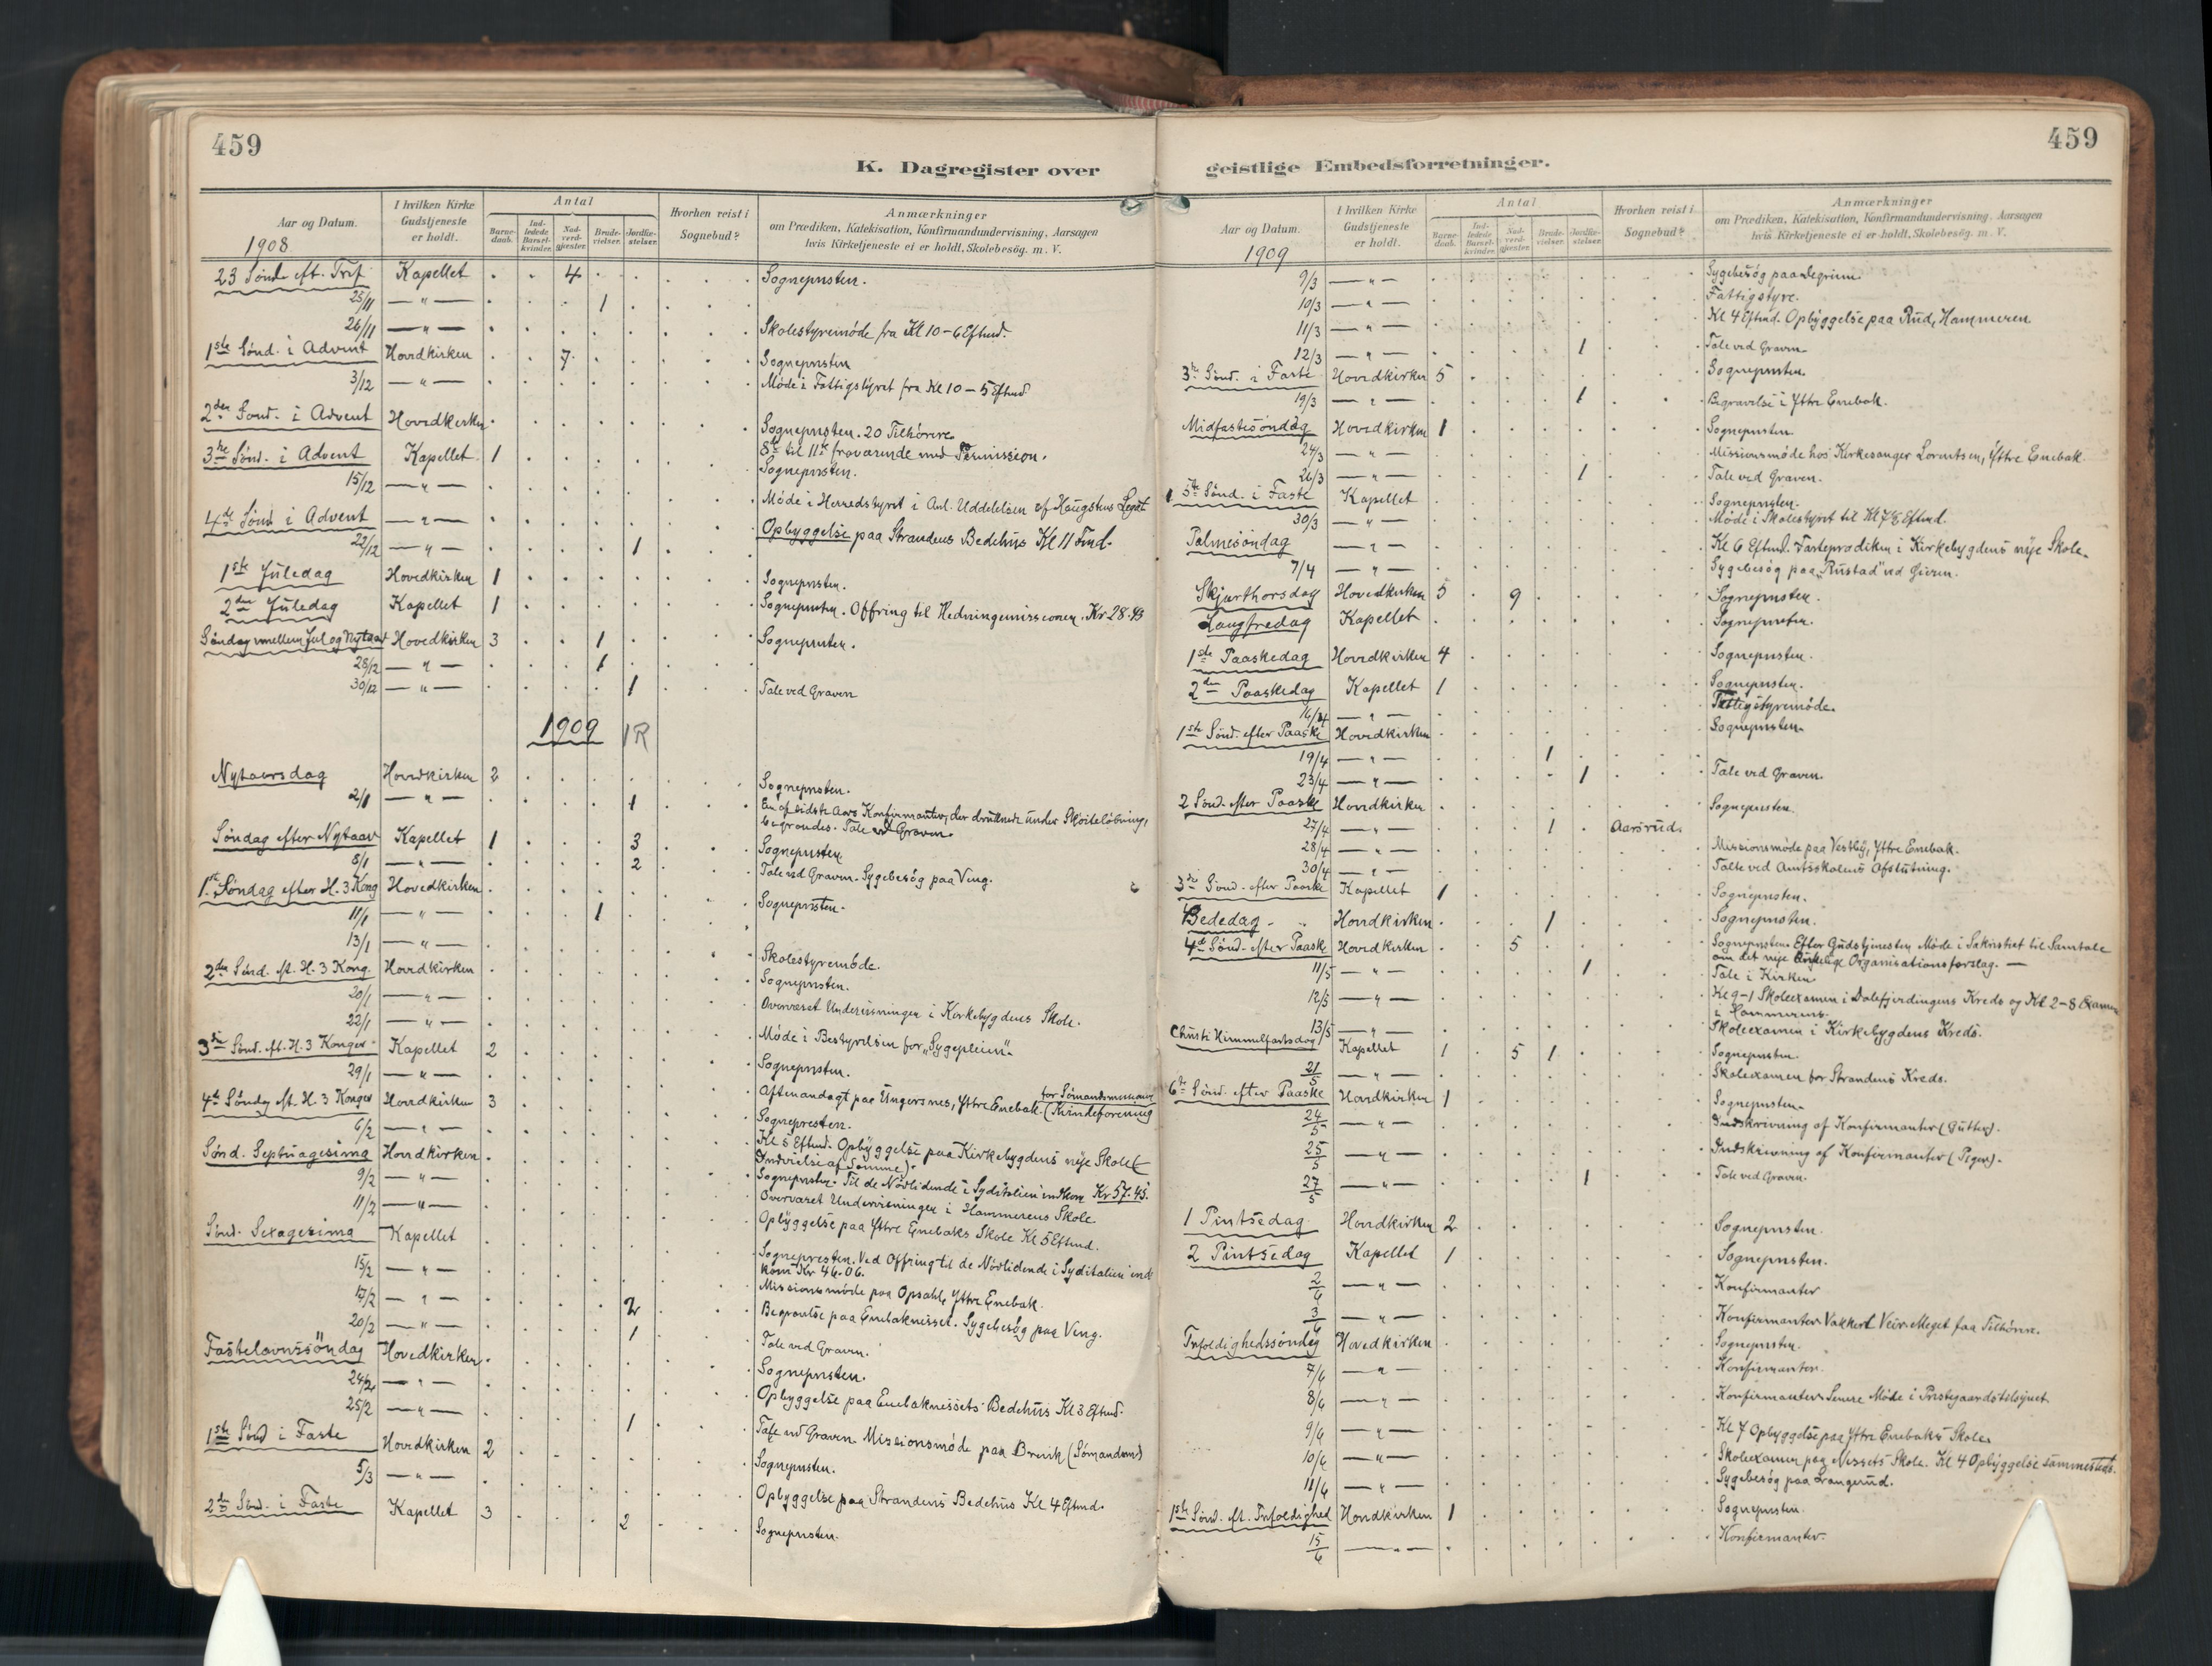 459
K. Dagregister over
Aar og Datum.
I hvilken Kirke Gudstjeneste er holdt.
Antal
Barnedaab.
Indledede Barselkvinder.
Nadverdgjester.
Brudevielser.
Jordfæstelser.
Hvorhen reist i Sognebud?
Anmærkninger
om Prædiken, Katekisation, Konfirmandundervisning, Aarsagen
hvis Kirketjeneste ei er holdt, Skolebesög. m. V.
1908
23 Sønd. eft. Tref. Kapellet . . 4 . . . . . Sognepresten.
25/11 — " — . . . 1 . . . .
26/11 — " — . . . . . . . . Skolestyremöde fra Kl 10-6 Eftmd.
1ste Sönd. i Advent Hovedkirken . . 7 . . . . . Sognepresten
3/12 — " — . . . . . . . . Möde i Fattigstyret fra Kl 10-5 Eftmd
2den Sond. i Advent Hovedkirken . . . . . . . . Sognepresten. 20 Tilhörere
8de til 11te fraværende med Permission.
3die Sönd. i Advent Kapellet 1 . . . . . . . Sognepresten.
15/12 — " — . . . . . . . . Möde i Herredstyret i Anl. Uddelelsen af Haugskus Legat
4de Sönd i Advent — " — . . . . . . . . Opbyggelse paa Strandens Bedehus Kl 11 Fmd.
22/12 — " — . . . . 1 . . .
1ste Juledag Hovedkirken 1 . . . . . . . Sognepresten.
2den Juledag Kapellet 1 . . . . . . . Sognepresten. Offring til Hedningemissionen. Kr 28.43
Söndag mellem Jul og Nytaar Hovedkirken 3 . . 1 . . . . Sognepresten.
28/12 — " — . . . 1 . . . .
30/12 — " — . . . . 1 . . . Tale ved Graven
1909 R
Nytaarsdag Hovedkirken 2 . . . . . . . Sognepresten.
2/1 — " — . . . . 1 . . . En af sidste Aars Konfirmanter, der druknede under Sköitelöbning,
begravedes. Tale ved Graven.
Söndag efter Nytaar Kapellet 1 . . . 3 . . . Sognepresten.
8/1 — " — . . . . 2 . . . Tale ved Graven. Sygebesög paa Veng.
1ste Söndag efter H. 3 Kong Hovedkirken . . . . . . . . Sognepresten.
11/1 — " — . . . 1 . . . .
13/1 — " — . . . . . . . . Skolestyremöde.
2den Sönd. eft. H. 3 Kong. Hovedkirken . . . . . . . . Sognepresten.
20/1 — " — . . . . . . . . Overværet Undervisningen i Kirkebygdens Skole.
22/1 — " — . . . . . . . . Möde i Bestyrelsen for „Sygepleien".
3die Sönd. eft. H. 3 Konger Kapellet 2 . . . . . . . Sognepresten.
29/1 — " — . . . . . . . . Aftenandagt paa Ungersnes, Ytre Enebak. (Kvindeforening for Sömandsmissionen)
4de Söndag eft. H. 3 Konger Hovedkirken 3 . . . . . . . Sognepresten.
6/2 — " — . . . . . . . . Kl 5 Eftmd. Opbyggelse paa Kirkebygdens nye Skole (
Indvielse af Samme).
Sönd. Septuagesima Hovedkirken . . . . . . . . Sognepresten. Til de Nödlidende i Syditalien indkom Kr 57.45.
9/2 — " — . . . . . . . . Overværet Undervisningen i Hammerens Skole
11/2 — " — . . . . . . . . Opbyggelse paa Ytre Enebaks Skole Kl 5 Eftmd.
Sönd. Sexagesima Kapellet . . . . . . . . Sognepresten. Ved Offring til de Nödlidende i Syditalien ind
kom Kr 46.06.
15/2 — " — . . . . . . . . Missionsmöde paa Opsahl, Ytre Enebak.
17/2 — " — . . . . 2 . . . Begravelse paa Enebaknesset. Sygebesög paa Veng.
20/2 — " — . . . . 1 . . . Tale ved Graven.
Fastelavnssöndag Hovedkirken . . . . . . . . Sognepresten.
24/2 — " — . . . . . . . . Opbyggelse paa Enebaknessets Bedehus Kl 3 Eftmd.
25/2 — " — . . . . 1 . . . Tale ved Graven. Missionsmöde paa Brevik (Sömandsm)
1ste Sönd i Faste Hovedkirken 2 . . . . . . . Sognepresten.
5/3 — " — . . . . . . . . Opbyggelse paa Strandens Bedehus Kl 4 Eftmd.
2den Sönd. i Faste Kapellet 3 . . . 2 . . . Sognepresten.
459
geistlige Embedsforretninger.
Aar og Datum.
I hvilken Kirke Gudstjeneste er holdt.
Antal
Barnedaab.
Indledede Barselkvinder.
Nadverdgjester.
Brudevielser.
Jordfæstelser.
Hvorhen reist i Sognebud?
Anmærkninger
om Prædiken, Katekisation, Konfirmandundervisning, Aarsagen
hvis Kirketjeneste ei er holdt, Skolebesög. m. V.
1909
9/3 — " — Sygebesög paa
10/3 — " — Fattigstyre.
11/3 — " — Kl 4 Eftmd. Opbyggelse paa Rud, Hammeren
12/3 — " — 1 Tale ved Graven
3die Sönd. i Faste Hovedkirken 5 Sognepresten.
19/3 — " — 1 Begravelse i Ytre Enebak.
Midfastesöndag Hovedkirken 1 Sognepresten.
24/3 — " — Missionsmöde hos Kirkesanger Lorentsen, Ytre Enebak.
26/3 — " — 1 Tale ved Graven.
5te Sönd. i Faste Kapellet Sognepresten.
30/3 — " — Möde i Skolestyret til Kl 7½ Eftmd.
Palmesöndag — " — Kl 6 Eftmd. Fasteprediken i Kirkebygdens nye Skole.
7/4 — " — Sygebesög paa „Rustad" ved Gjeren.
Skjærthorsdag Hovedkirken 5 . 9 Sognepresten.
Langfredag Kapellet Sognepresten.
1ste Paaskedag Hovedkirken 4 Sognepresten.
2den Paaskedag Kapellet 1 Sognepresten.
16/4 — " — Fattigstyremöde.
1ste Sönd. efter Paaske Hovedkirken Sognepresten.
19/4 — " — 1
23/4 — " — 1 Tale ved Graven.
2 Sönd. efter Paaske Hovedkirken Sognepresten.
27/4 — " — 1 Aarsrud.
28/4 — " — Missionsmöde paa Vestby, Ytre Enebak.
30/4 — " — Talte ved Amtsskolens Afslutning.
3die Sönd. efter Paaske Kapellet 1 Sognepresten.
Bededag Hovedkirken 1 Sognepresten.
4de Sönd. efter Paask Hovedkirken . . 5 Sognepresten. Efter Gudstjenesten Möde i Sakristiet til Samtale
om det nye kirkelige Organisationsforslag. —
11/5 — " — 1 Tale i Kirken
12/5 — " — Kl 9-1 Skoleexamen i Dalefjerdingens Kreds og Kl 2-8 Examen
i Hammerens.
13/5 — " — Skoleexamen i Kirkebygdens Kreds.
Christi Himmelfartsdag Kapellet 1 . 5 1 Sognepresten
21/5 — " — Skoleexamen for Strandens Kreds.
6te Sönd. efter Paaske Hovedkirken 1 Sognepresten.
24/5 — " — Indskrivning af Konfirmanter (Gutter).
25/5 — " — Indskrivning af Konfirmanter (Piger).
27/5 — " — 1 Tale ved Graven.
1 Pintsedag Hovedkirken 2 Sognepresten.
2 Pintsedag Kapellet 1 Sognepresten.
2/6 — " — Konfirmanter
3/6 — " — Konfirmanter. Vakkert Veir. Meget faa Tilhörere.
Trefoldighedssöndag Hovedkirken Sognepresten.
7/6 — " — Konfirmanter.
8/6 — " — Konfirmanter. Senere Möde i Prestegaardstilsynet
9/6 — " — Kl 7 Opbyggelse paa Ytre Enebaks Skole.
10/6 — " — Skoleexamen paa Nessets Skole. Kl 4 Opbyggelse sammesteds.
11/6 — " — Sygebesög paa Langerud.
1ste Sönd. eft. Trefoldighed Hovedkirken 1 Sognepresten.
15/6 — " — Konfirmanter.